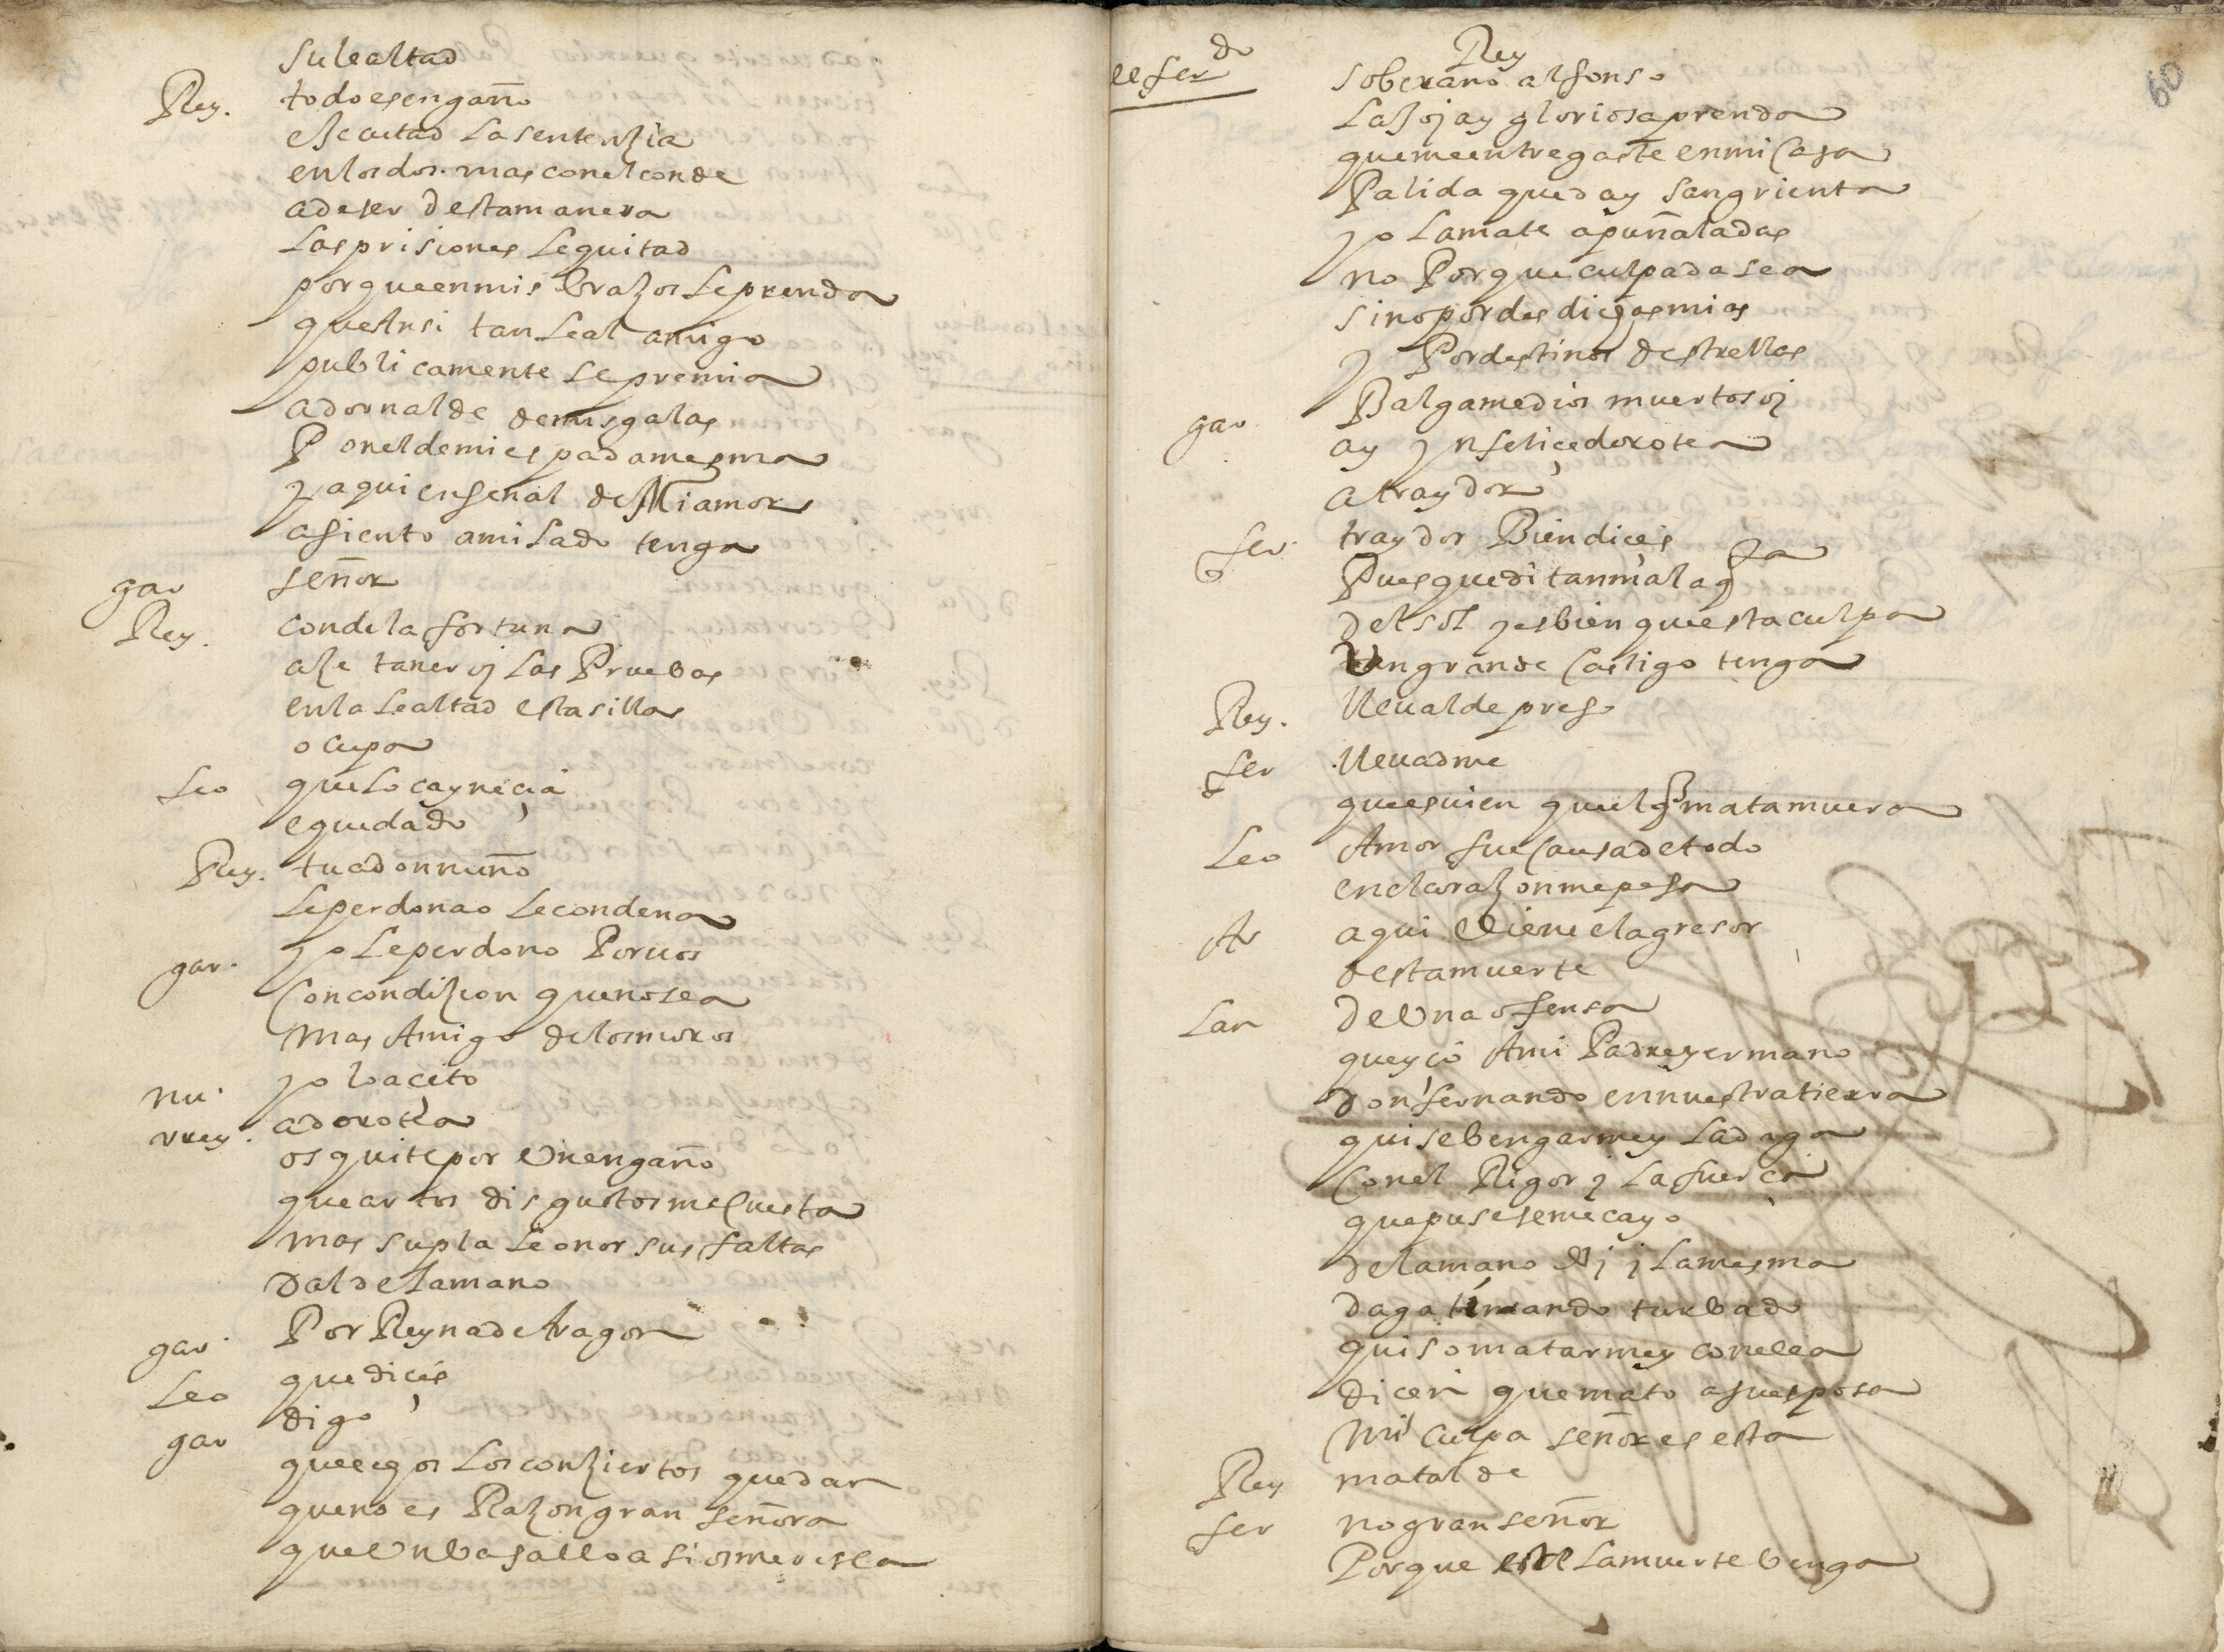 su lealtad
Rey. todo es engaño
esecutad la sentenzia
en los dos. mas con el conde
a de ser desta manera
las prisiones le quitad
porque en mis brazos le prenda
que ansi tan leal amigo
publicamente se premia
adornalde de mis galas
Poneldemi espada mesma
y aqui en señal de Mi amor
asiento a mi lado tenga
gar señor
Rey. conde la fortuna
aze tener oj las Pruebas
en la lealtad esta silla
ocupa
Leo que loca y necia
e quedado
Rey. tu a don nuño
le perdona o le condena
gar. yo le perdono Por vos
con condizion que no sea
mas Amigo de los moros
nu. yo lo aceto
rrey. a dorotea
os quite por Un engaño
que artos disgustos me cuesta
mas supla leonor sus faltas
dalde la mano
gar. Por Reyna de Aragon
Leo que dices
gar digo
que egos los conziertos quedan
que no es Razon gran señora
que Un basallo asi os meresca
ee fer do
Rey
soberano alfonso
la joj a y gloriosa prenda
que me entregaste en mi casa
Palida queda y sangrienta
yo la mate a puñaladas
no Porque culpada sea
sino por desdichas mias
y Por destinos de strellas
gar. Balgame dios muertos oj
ay ynfelice dorotea
a traydor
fer. traydor Bien dices
Pues que di tan mala qta
del sol y es bien que esta culpa
Un grande castigo tenga
Rey. lleualde preso
fer lleuadme
que es uien que el q mata muera
Leo Amor fue causa de todo
en el corazon me pesa
Ar aqui Uiene el agresor
desta muerte
Lan de Una ofensa
que yço A mi Padre y ermano
don fernando en nuestra tierra
quise bengarme y la daga
con el Rigor y la fuerça
que puse se me cayo
de la mano y la mesma
daga turbado
quiso matarme y con ella
dicen que mato a su esposa
mi culpa señor es esta
Rey matalde
fer no gran señor
Porque la muerte benga
60